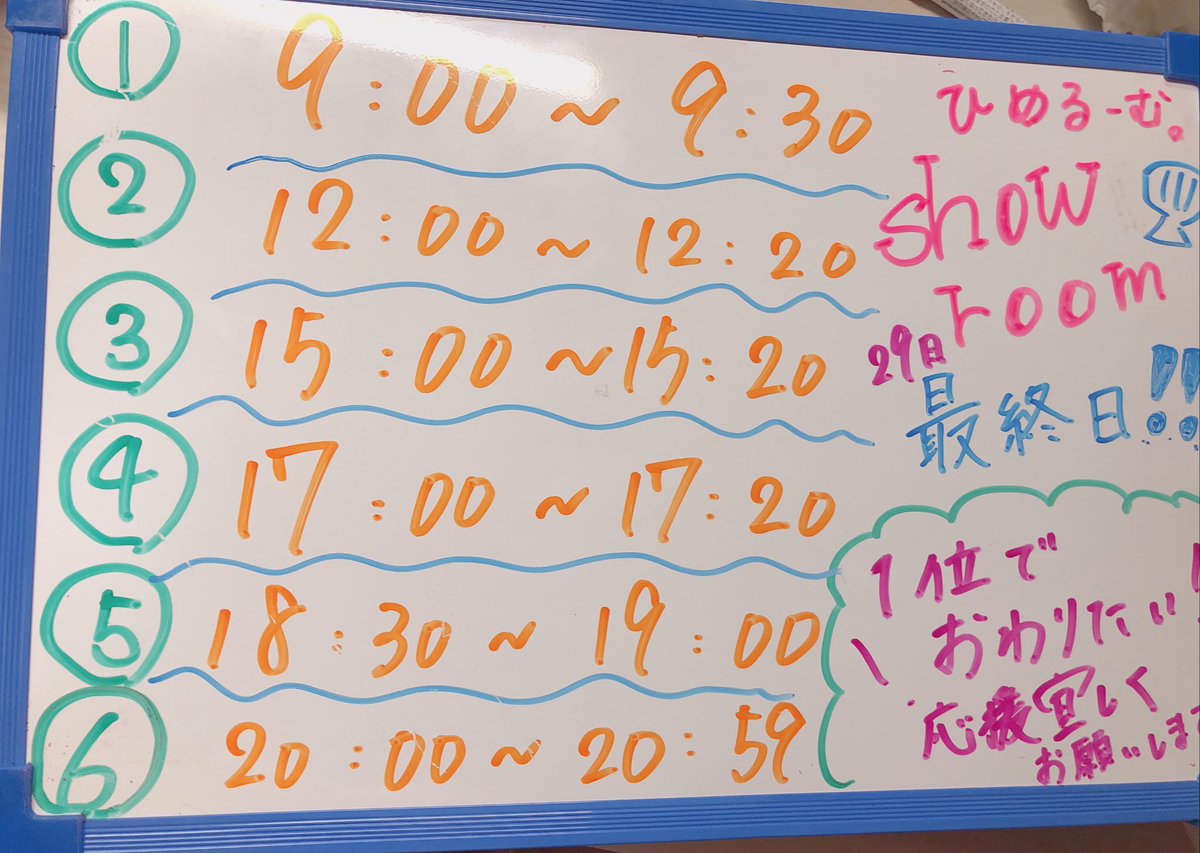 ① 9:00～9:30
② 12:00～12:20
③ 15:00～15:20
④ 17:00～17:20
⑤ 18:30～19:00
⑥ 20:00～20:59
ひめるーむ。
show
room
29日
最終日!!
1位で
おわりたい
応援宜しく
お願いします